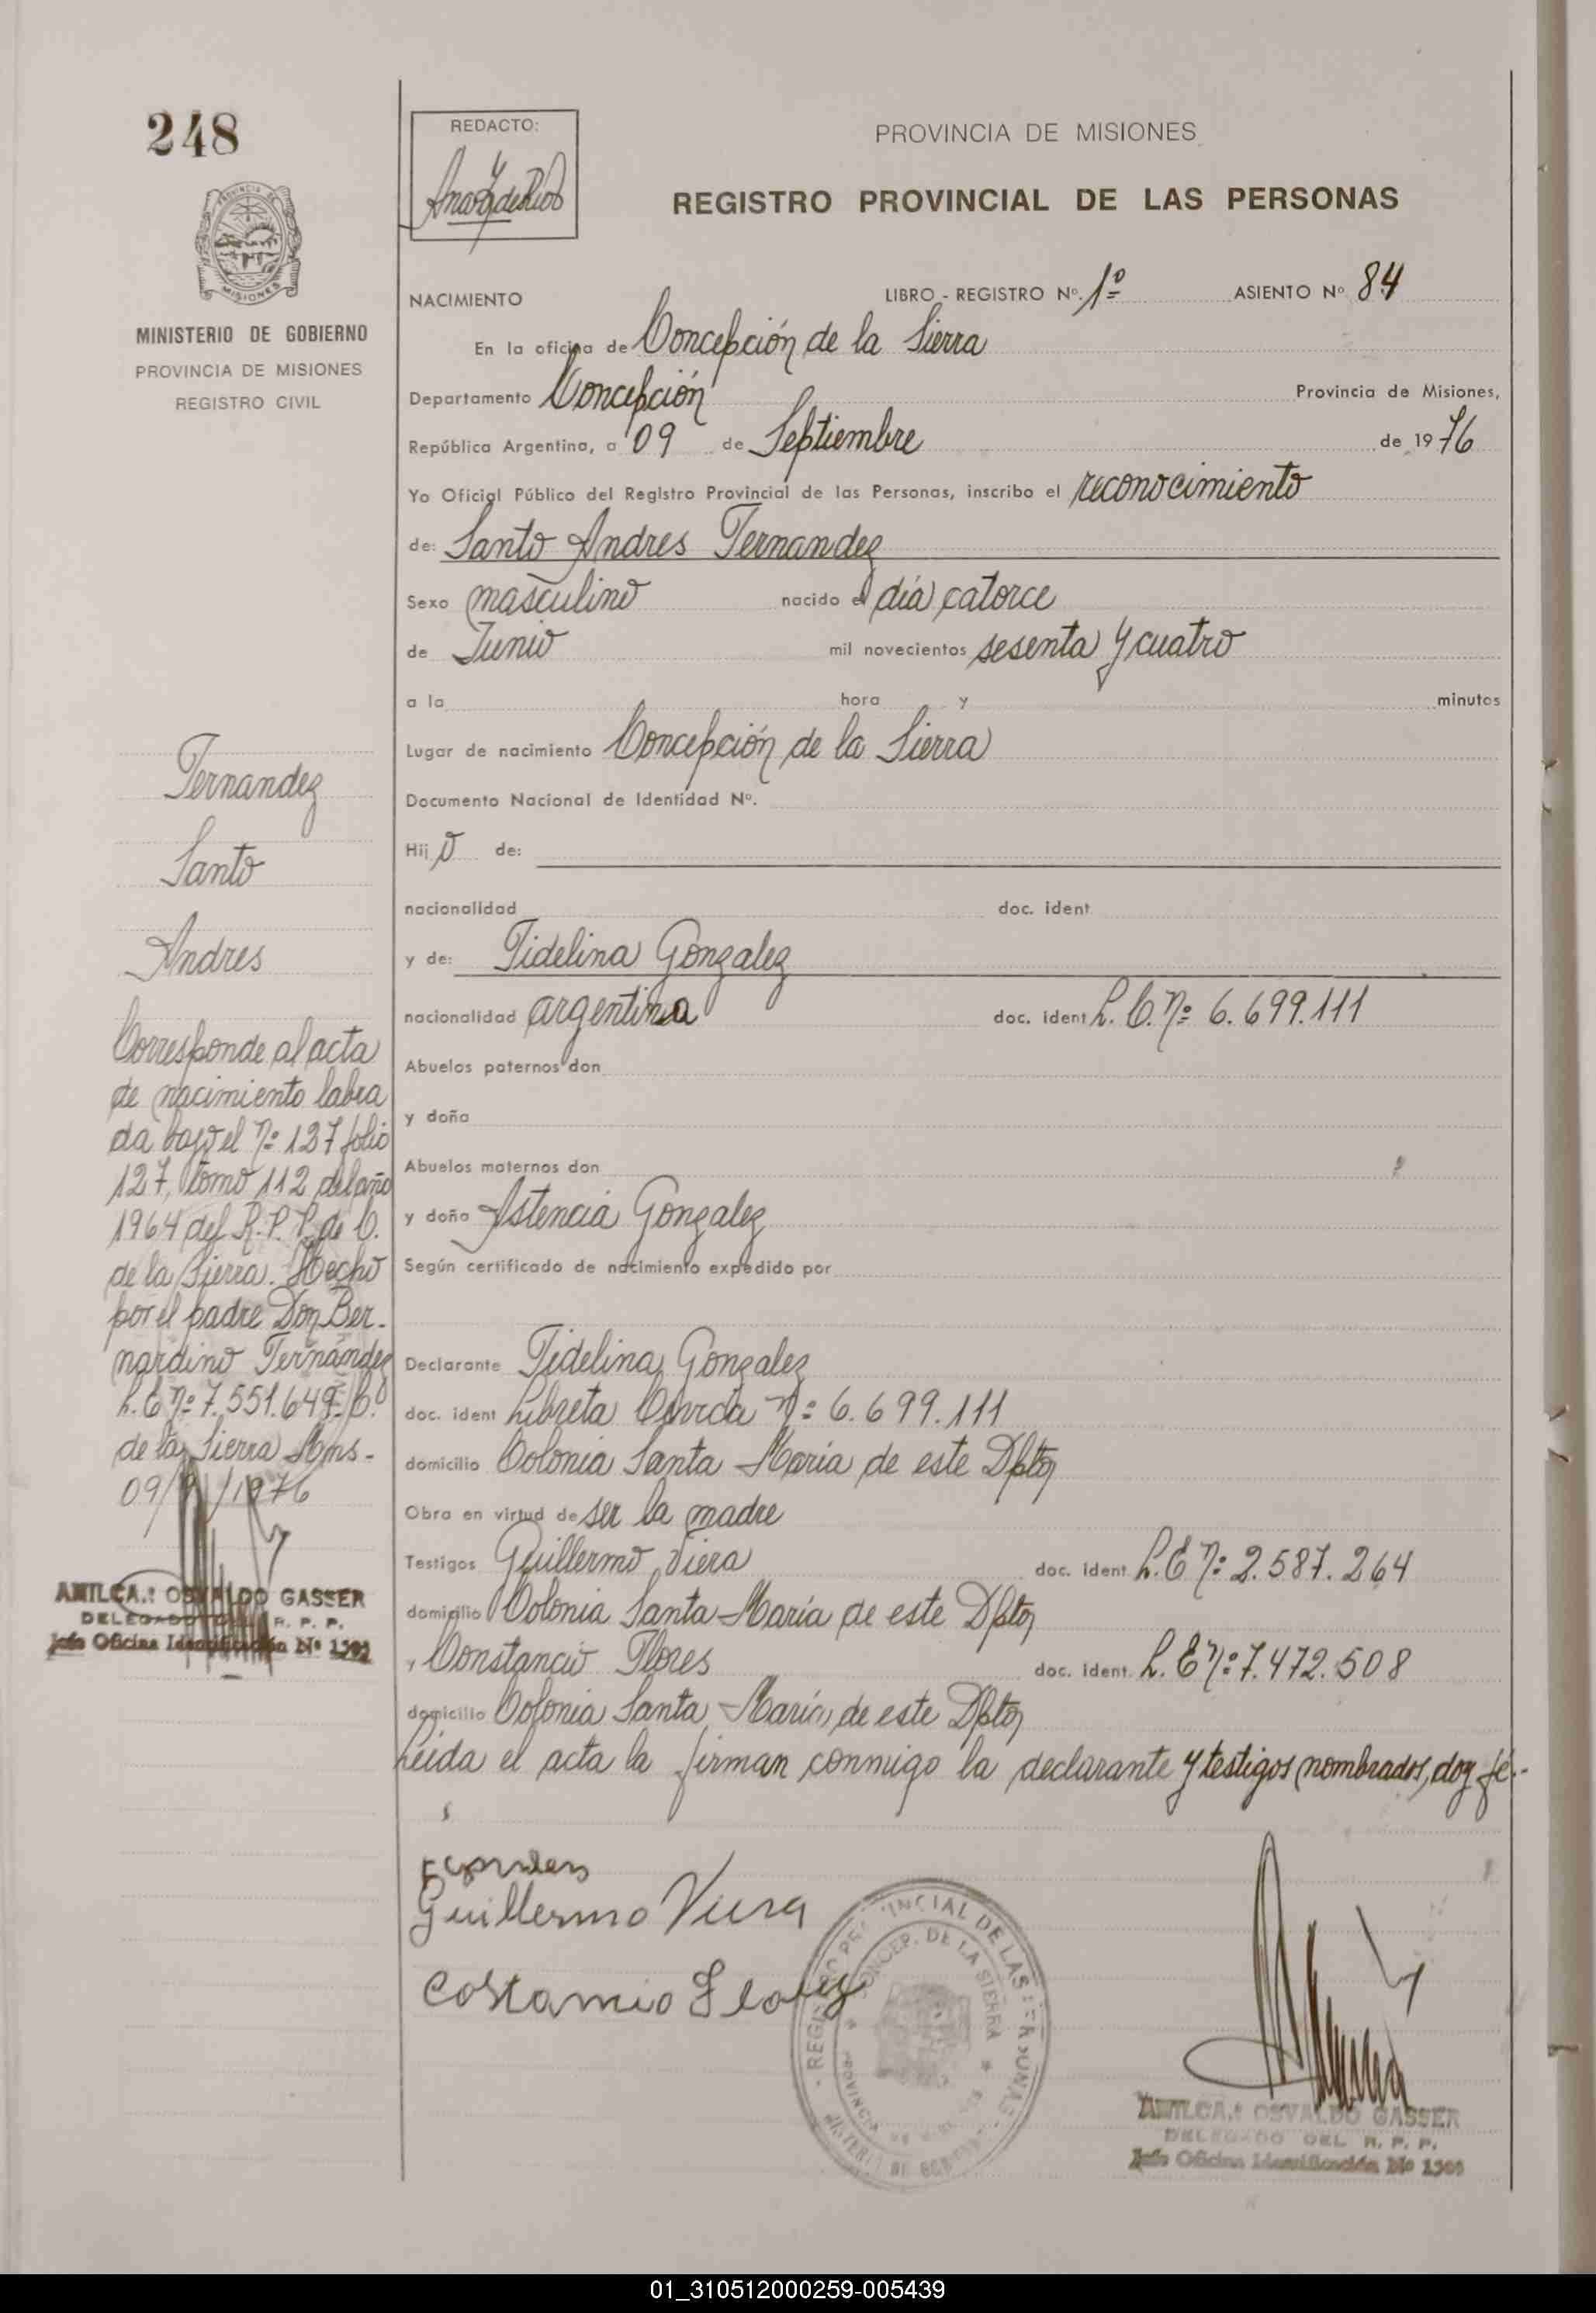 248
REDACTO:
PROVINCIA DE MISIONES
REGISTRO PROVINCIAL DE LAS PERSONAS
MISIONES
MINISTERIO DE GOBIERNO
PROVINCIA DE MISIONES
REGISTRO CIVIL
NACIMIENTO LIBRO - REGISTRO Nº. 1º ASIENTO Nº 84
En la oficina de Concepción de la Sierra
Departamento Concepción Provincia de Misiones,
República Argentina, a 09 de Septiembre de 1976
Yo Oficial Público del Registro Provincial de las Personas, inscribo el reconocimiento
de: Santo Andres Fernandez
Sexo masculino nacido el día catorce
de Junio mil novecientos sesenta y cuatro
a la hora y minutos
Lugar de nacimiento Concepción de la Sierra
Documento Nacional de Identidad Nº.
Hijo de:
nacionalidad doc. ident
y de: Fidelina Gonzalez
nacionalidad argentina doc. ident L. C. nº 6.699.111
Abuelos paternos don
y doña
Abuelos maternos don
y doña Astencia Gonzalez
Según certificado de nacimiento expedido por
Declarante Fidelina Gonzalez
doc. ident Libreta Civica nº 6.699.111
domicilio Colonia Santa María de este Dpto
Obra en virtud de ser la madre
Testigos Guillermo Viera doc. ident L.E nº 2.587.264
domicilio Colonia Santa María de este Dpto
y Constancio Flores doc. ident. L. E nº 7.472.508
domicilio Colonia Santa María de este Dpto
Leida el acta la firman conmigo la declarante y testigos nombrados, doy fé.-
Fernandez
Santo
Andres
Corresponde al acta
de nacimiento labra
da bajo el nº 127 folio
127, tomo 112 del año
1964 del R.P.P. de C.
de la Sierra. Hecho
por el padre Don Ber-
nardino Fernández
L.E nº 7.551.649. C.
de la Sierra Mns-
09/9/1976
AMILCA.: OSVALDO GASSER
DELEGADO DEL R. P. P.
Jefe Oficina Identificación Nº 1505
Guillermo Viera
Costamio Flores
REGISTRO PROVINCIAL DE LAS PERSONAS
CONCEP. DE LA SIERRA
PROVINCIA DE MISIONES
MINISTERIO DE GOBIERNO
AMILCA.: OSVALDO GASSER
DELEGADO DEL R. P. P.
Jefe Oficina Identificación Nº 1505
01_310512000259-005439